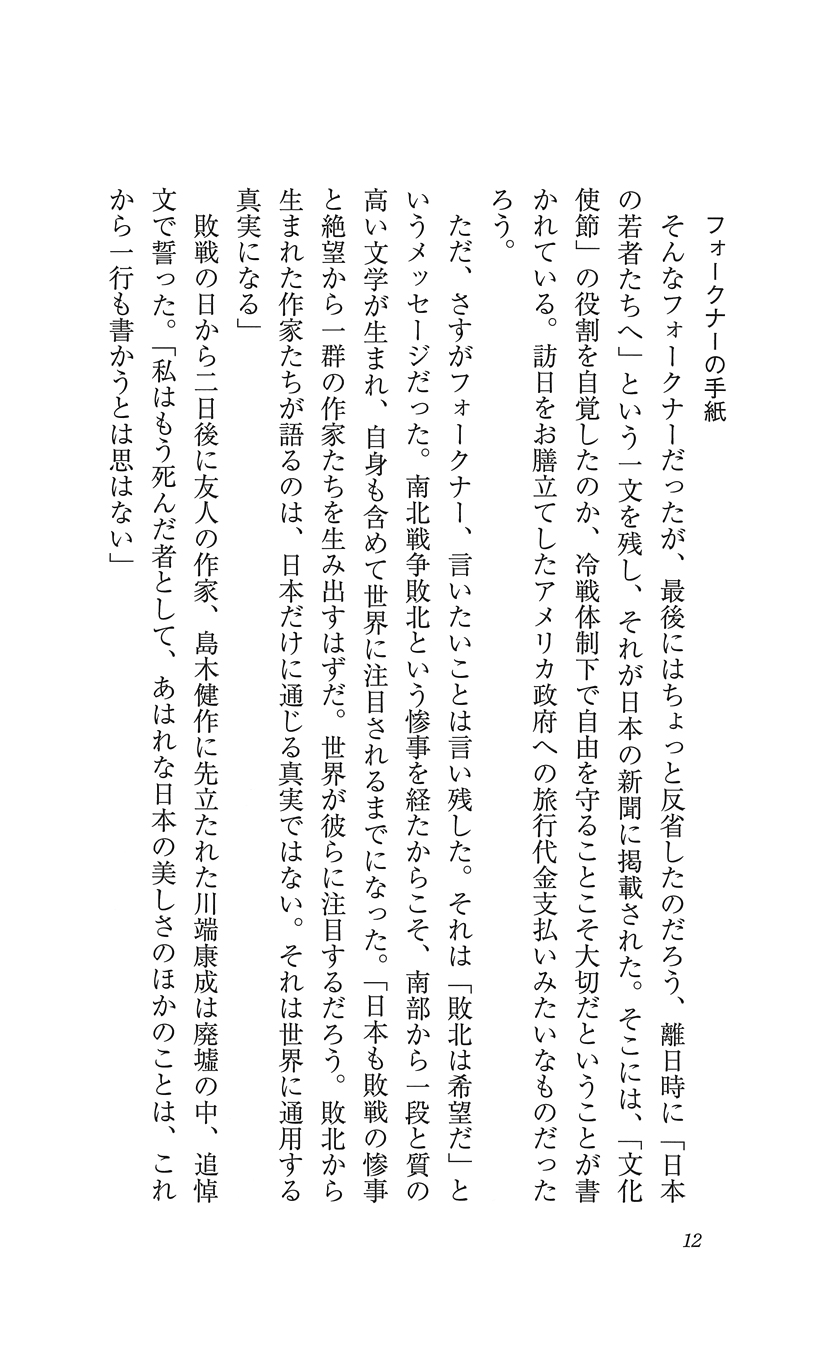 フォークナーの手紙
そんなフォークナーだったが、最後にはちょっと反省したのだろう、離日時に「日本
の若者たちへ」という一文を残し、それが日本の新聞に掲載された。そこには、「文化
使節」の役割を自覚したのか、冷戦体制下で自由を守ることこそ大切だということが書
かれている。訪日をお膳立てしたアメリカ政府への旅行代金支払いみたいなものだった
ろう。
ただ、さすがフォークナー、言いたいことは言い残した。それは「敗北は希望だ」と
いうメッセージだった。南北戦争敗北という惨事を経たからこそ、南部から一段と質の
高い文学が生まれ、自身も含めて世界に注目されるまでになった。「日本も敗戦の惨事
と絶望から一群の作家たちを生み出すはずだ。世界が彼らに注目するだろう。敗北から
生まれた作家たちが語るのは、日本だけに通じる真実ではない。それは世界に通用する
真実になる」
敗戦の日から二日後に友人の作家、島木健作に先立たれた川端康成は廃墟の中、追悼
文で誓った。「私はもう死んだ者として、あはれな日本の美しさのほかのことは、これ
から一行も書かうとは思はない」
12